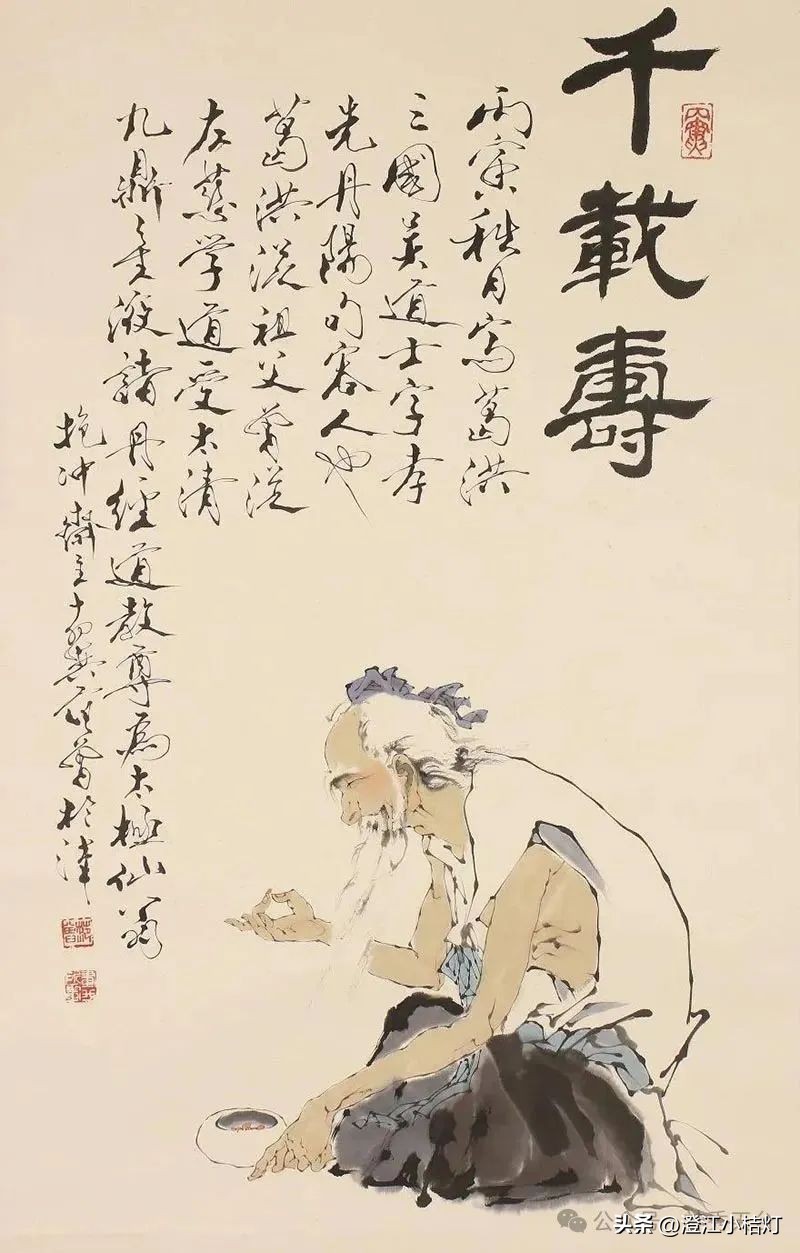 千載壽
丙寅秋月寫葛洪
三國吴道士字孝
先丹陽句容人也
葛洪從祖父嘗從
左慈学道受太清
九鼎金液諸丹經道教尊為太極仙翁
抱冲齋主十翼范曾於津
头条 @澄江小桔灯